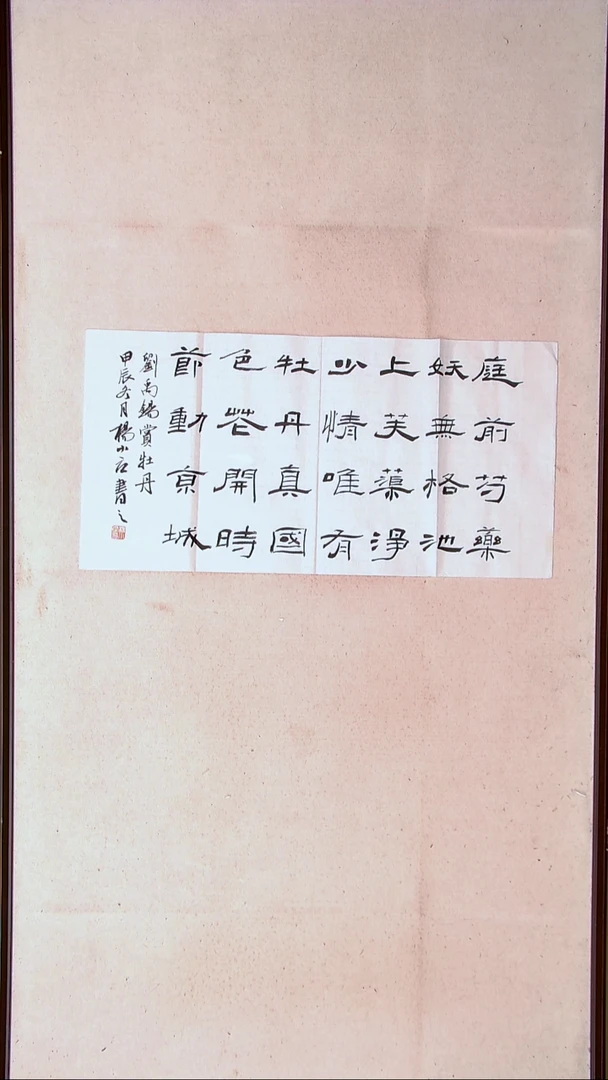 庭前芍藥
妖無格池
上芙蕖淨
少情唯有
牡丹真國
色花開時
節動京城
劉禹錫賞牡丹
甲辰冬月楊小書之